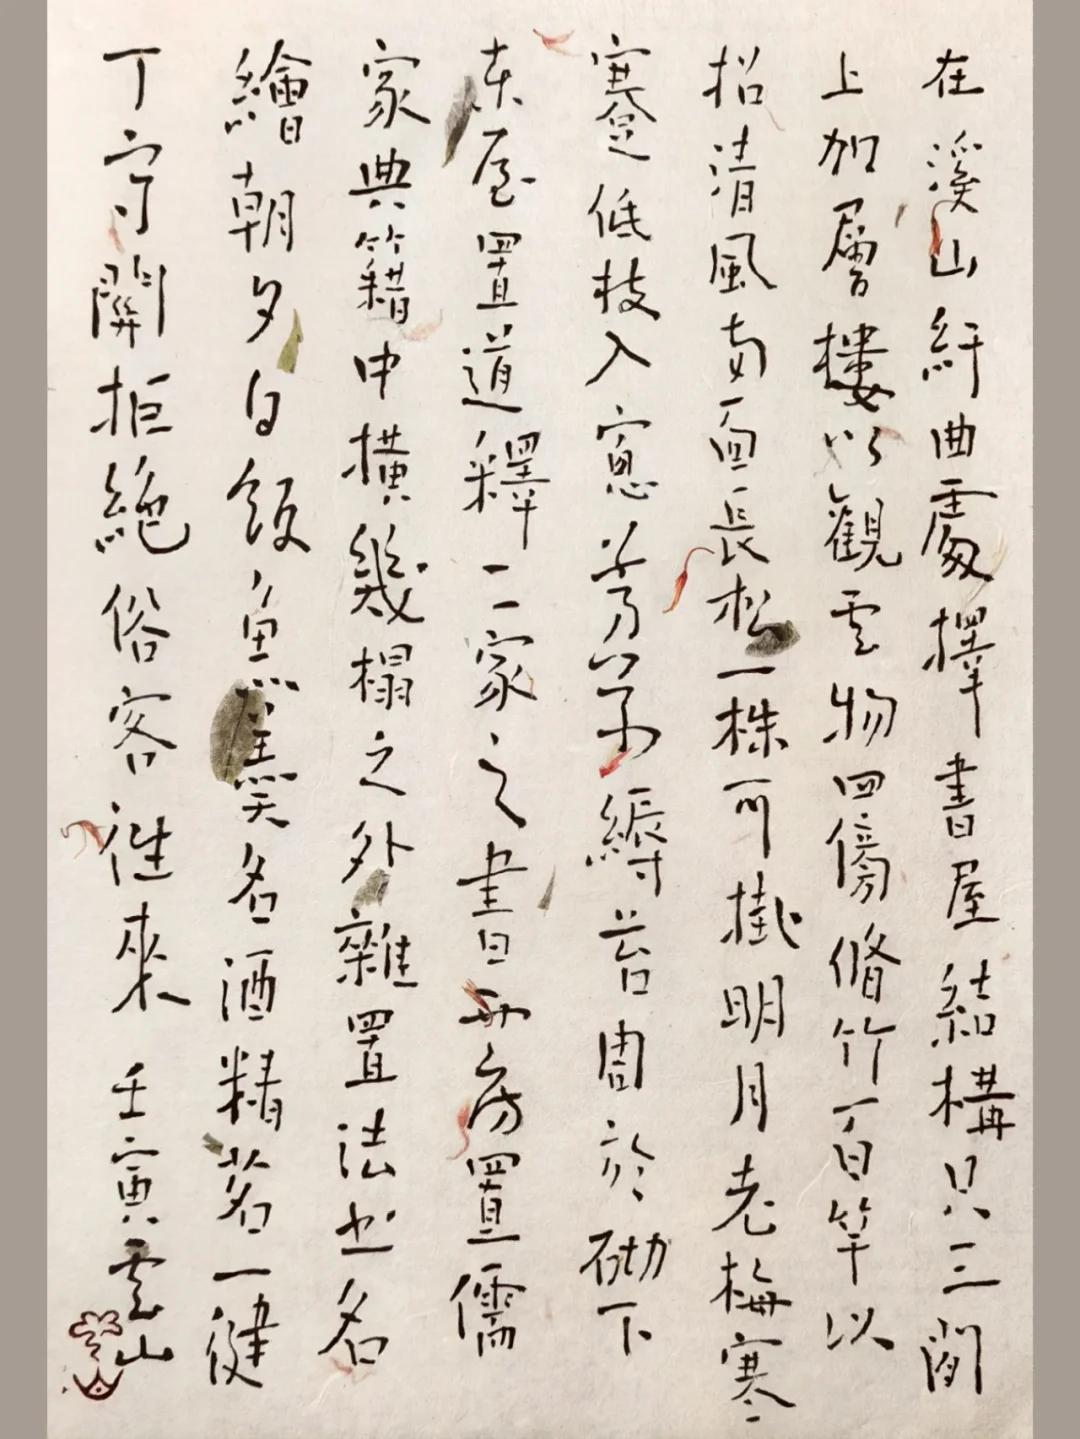 在溪山紆曲處擇書屋結構只三間
上加層樓以觀雲物四傍脩竹百竿以
招清風南面長松一株可掛明月老梅寒
蹇低枝入窗芳草縟苔周於砌下
東屋置道釋二家之書西房置儒
家典籍中橫幾榻之外雜置法書名
繪朝夕白飯魚羹名酒精茗一健
丁守關拒絕俗客往來 壬寅雲山